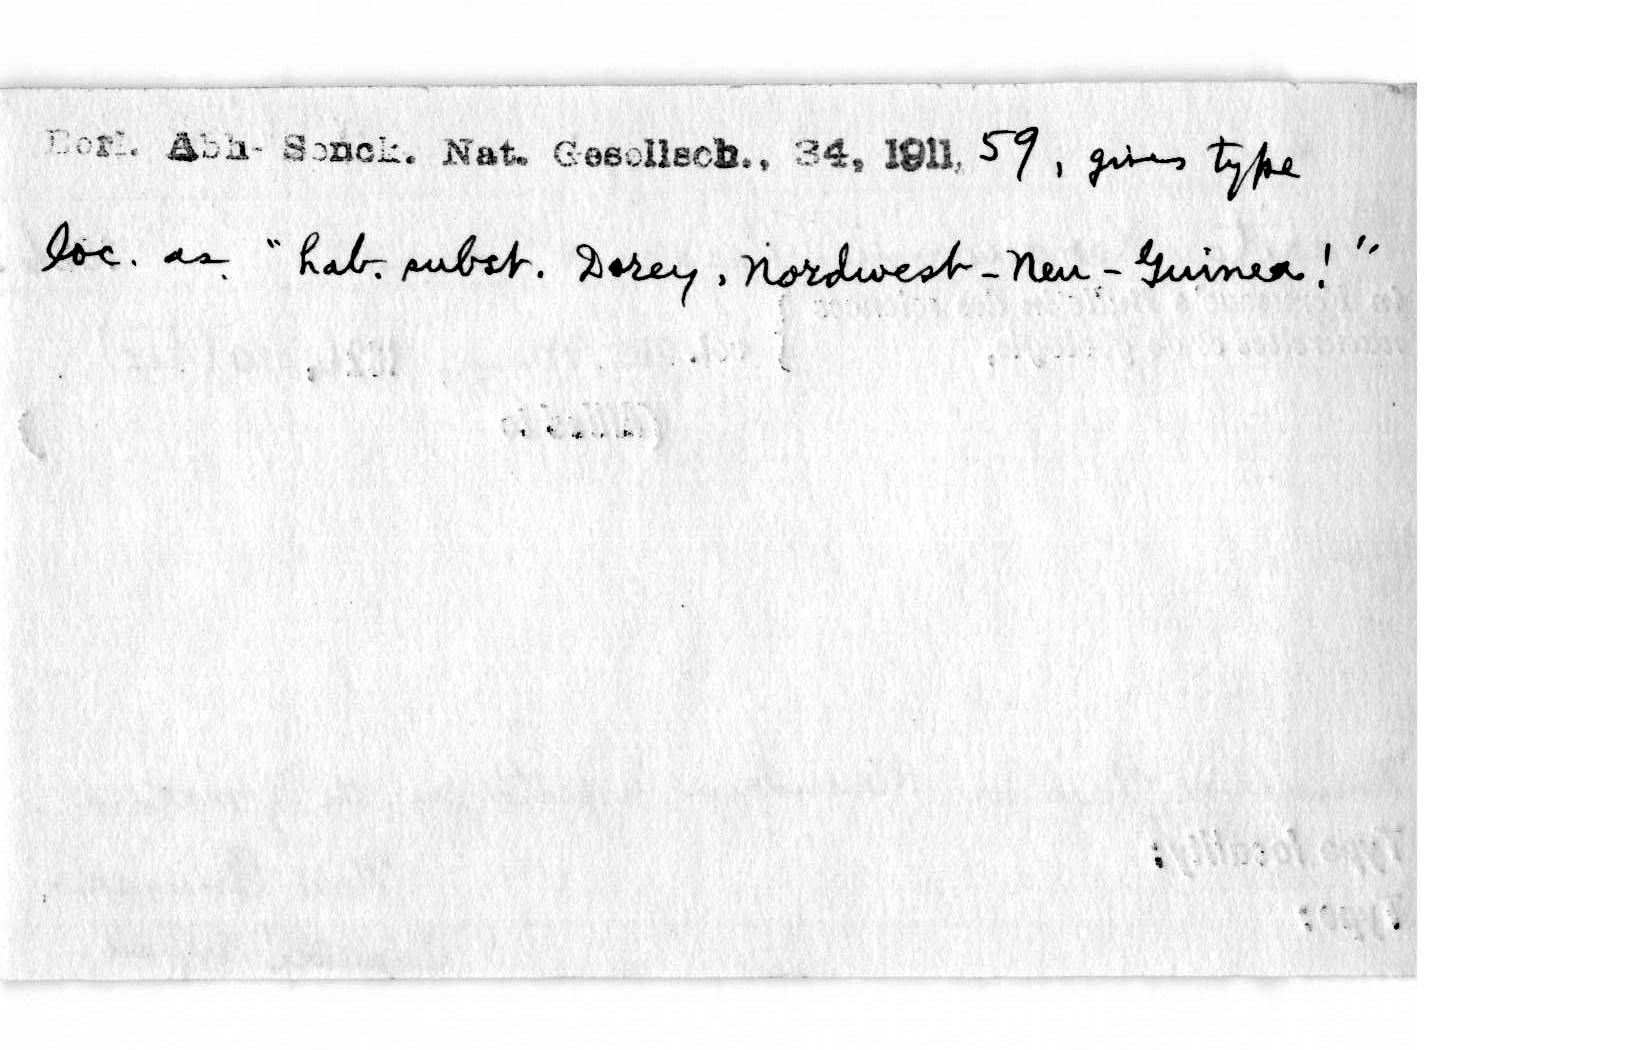 Berl. Abh. Senck. Nat. Gesellsch., 34, 1911, 59, gives type
loc. as "hab. subst. Dorey, Nordwest-Neu-Guinea!"